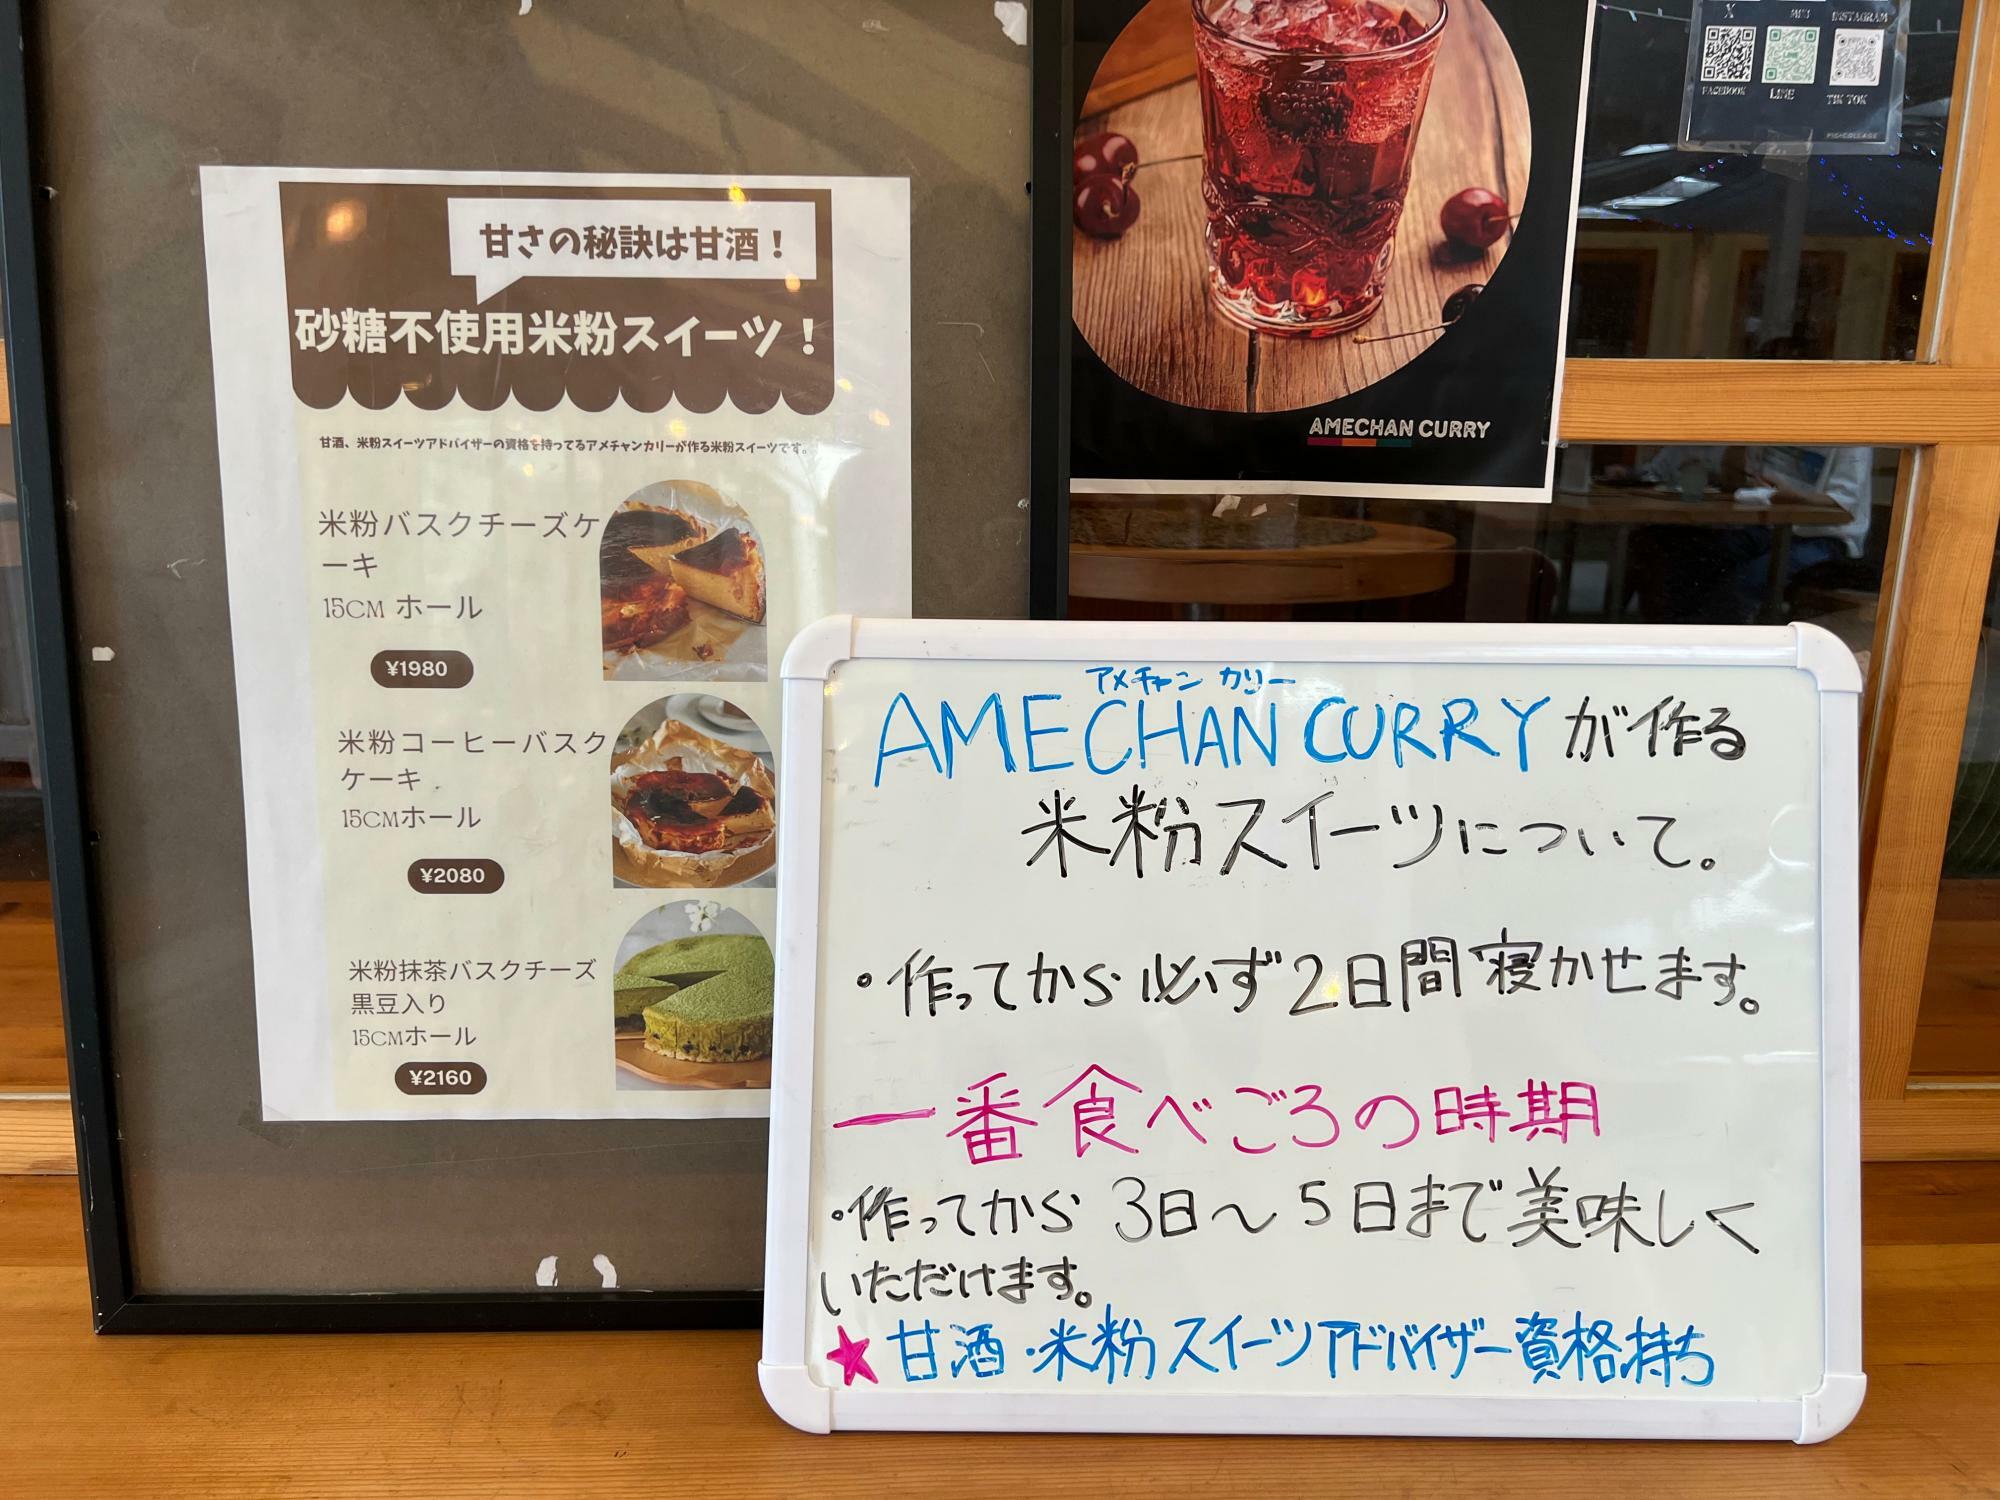 甘さの秘訣は甘酒！
砂糖不使用米粉スイーツ！
甘酒、米粉スイーツアドバイザーの資格を持ってるアメチャンカリーが作る米粉スイーツです。
米粉バスクチーズケ
ーキ
15CM ホール
¥1980
米粉コーヒーバスク
ケーキ
15CMホール
¥2080
米粉抹茶バスクチーズ
黒豆入り
15CMホール
¥2160
AMECHAN CURRY
X
INSTAGRAM
FACEBOOK
LINE
TIK TOK
PIC•COLLAGE
アメチャン カリー
AMECHAN CURRYが作る
米粉スイーツについて。
・作ってから必ず2日間寝かせます。
一番食べごろの時期
・作ってから 3日〜5日まで美味しく
いただけます。
★甘酒・米粉スイーツアドバイザー資格持ち